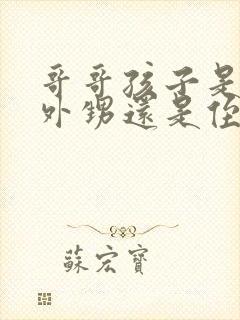 哥哥孩子是
外甥還是侄
蘇宏寶